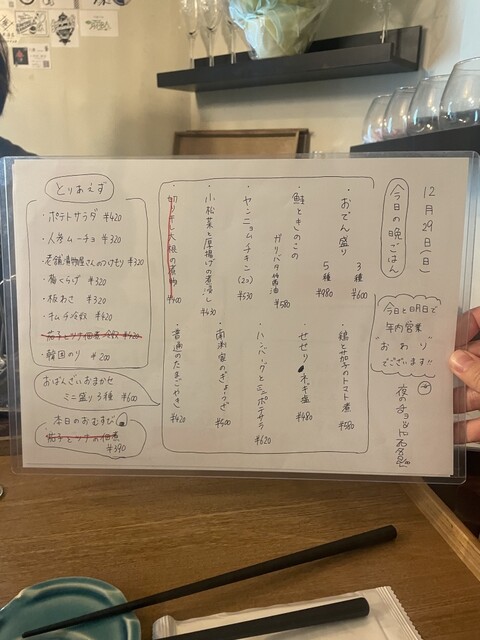 12月29日(日)
今日の晩ごはん
今日と明日で
年内営業
"おわり"
でございます!!
おでん盛り
3種 ¥600
5種 ¥980
鮭ときのこの
ガリバタ醤油
¥580
ヤンニョムチキン(2コ) ¥530
小松菜と厚揚げの煮浸し ¥430
切り干し大根の煮物 ¥400
鶏と茄子のトマト煮 ¥580
セセリネギ塩 ¥480
ハンバーグとミニポテサラ ¥620
南洲家のぎょうざ ¥400
普通のたまごやき ¥420
とりあえず
・ポテトサラダ ¥420
・人参ムーチョ ¥320
・老舗漬物屋さんのつけもり ¥320
・梅くらげ ¥320
・板わさ ¥320
・キムチ冷奴 ¥420
・茄子とツナ佃煮冷奴 ¥420
・韓国のり ¥200
おばんざいおまかせ
ミニ盛り3種 ¥600
本日のおむすび
・茄子とツナの佃煮
¥390